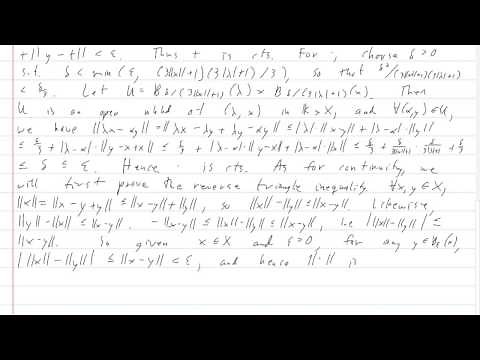 + ||y - t|| < ε. Thus + is cts. For ·, choose δ > 0
s.t. δ < min(ε, (3||x||+1)(3|λ|+1)/3), so that δ²/(3||x||+1)(3|λ|+1)
< δ/3. Let U = B δ/(3||x||+1) (λ) × B δ/(3|λ|+1) (x). Then
U is an open nbhd of (λ, x) in K × X, and ∀(α,y) ∈ U,
we have ||λx - αy|| = ||λx - λy + λy - αy|| ≤ |λ| ||x-y|| + |λ-α| ||y||
≤ δ/3 + |λ-α| · ||y-x+x|| ≤ δ/3 + |λ-α| · ||y-x|| + |λ-α| · ||x|| ≤ δ/3 + δ/(3||x||+1) · δ/(3|λ|+1) + δ/3
≤ δ ≤ ε. Hence · is cts. As for continuity, we
will first prove the reverse triangle inequality. ∀x,y ∈ X,
||x|| = ||x - y + y|| ≤ ||x-y|| + ||y||, so ||x|| - ||y|| ≤ ||x-y||. Likewise,
||y|| - ||x|| ≤ ||x-y||. -||x-y|| ≤ ||x|| - ||y|| ≤ ||x-y||, i.e. | ||x|| - ||y|| | ≤
||x-y||. So given x ∈ X and ε > 0, for any y ∈ Bε(x),
| ||x|| - ||y|| | ≤ ||x-y|| < ε, and hence ||·|| is